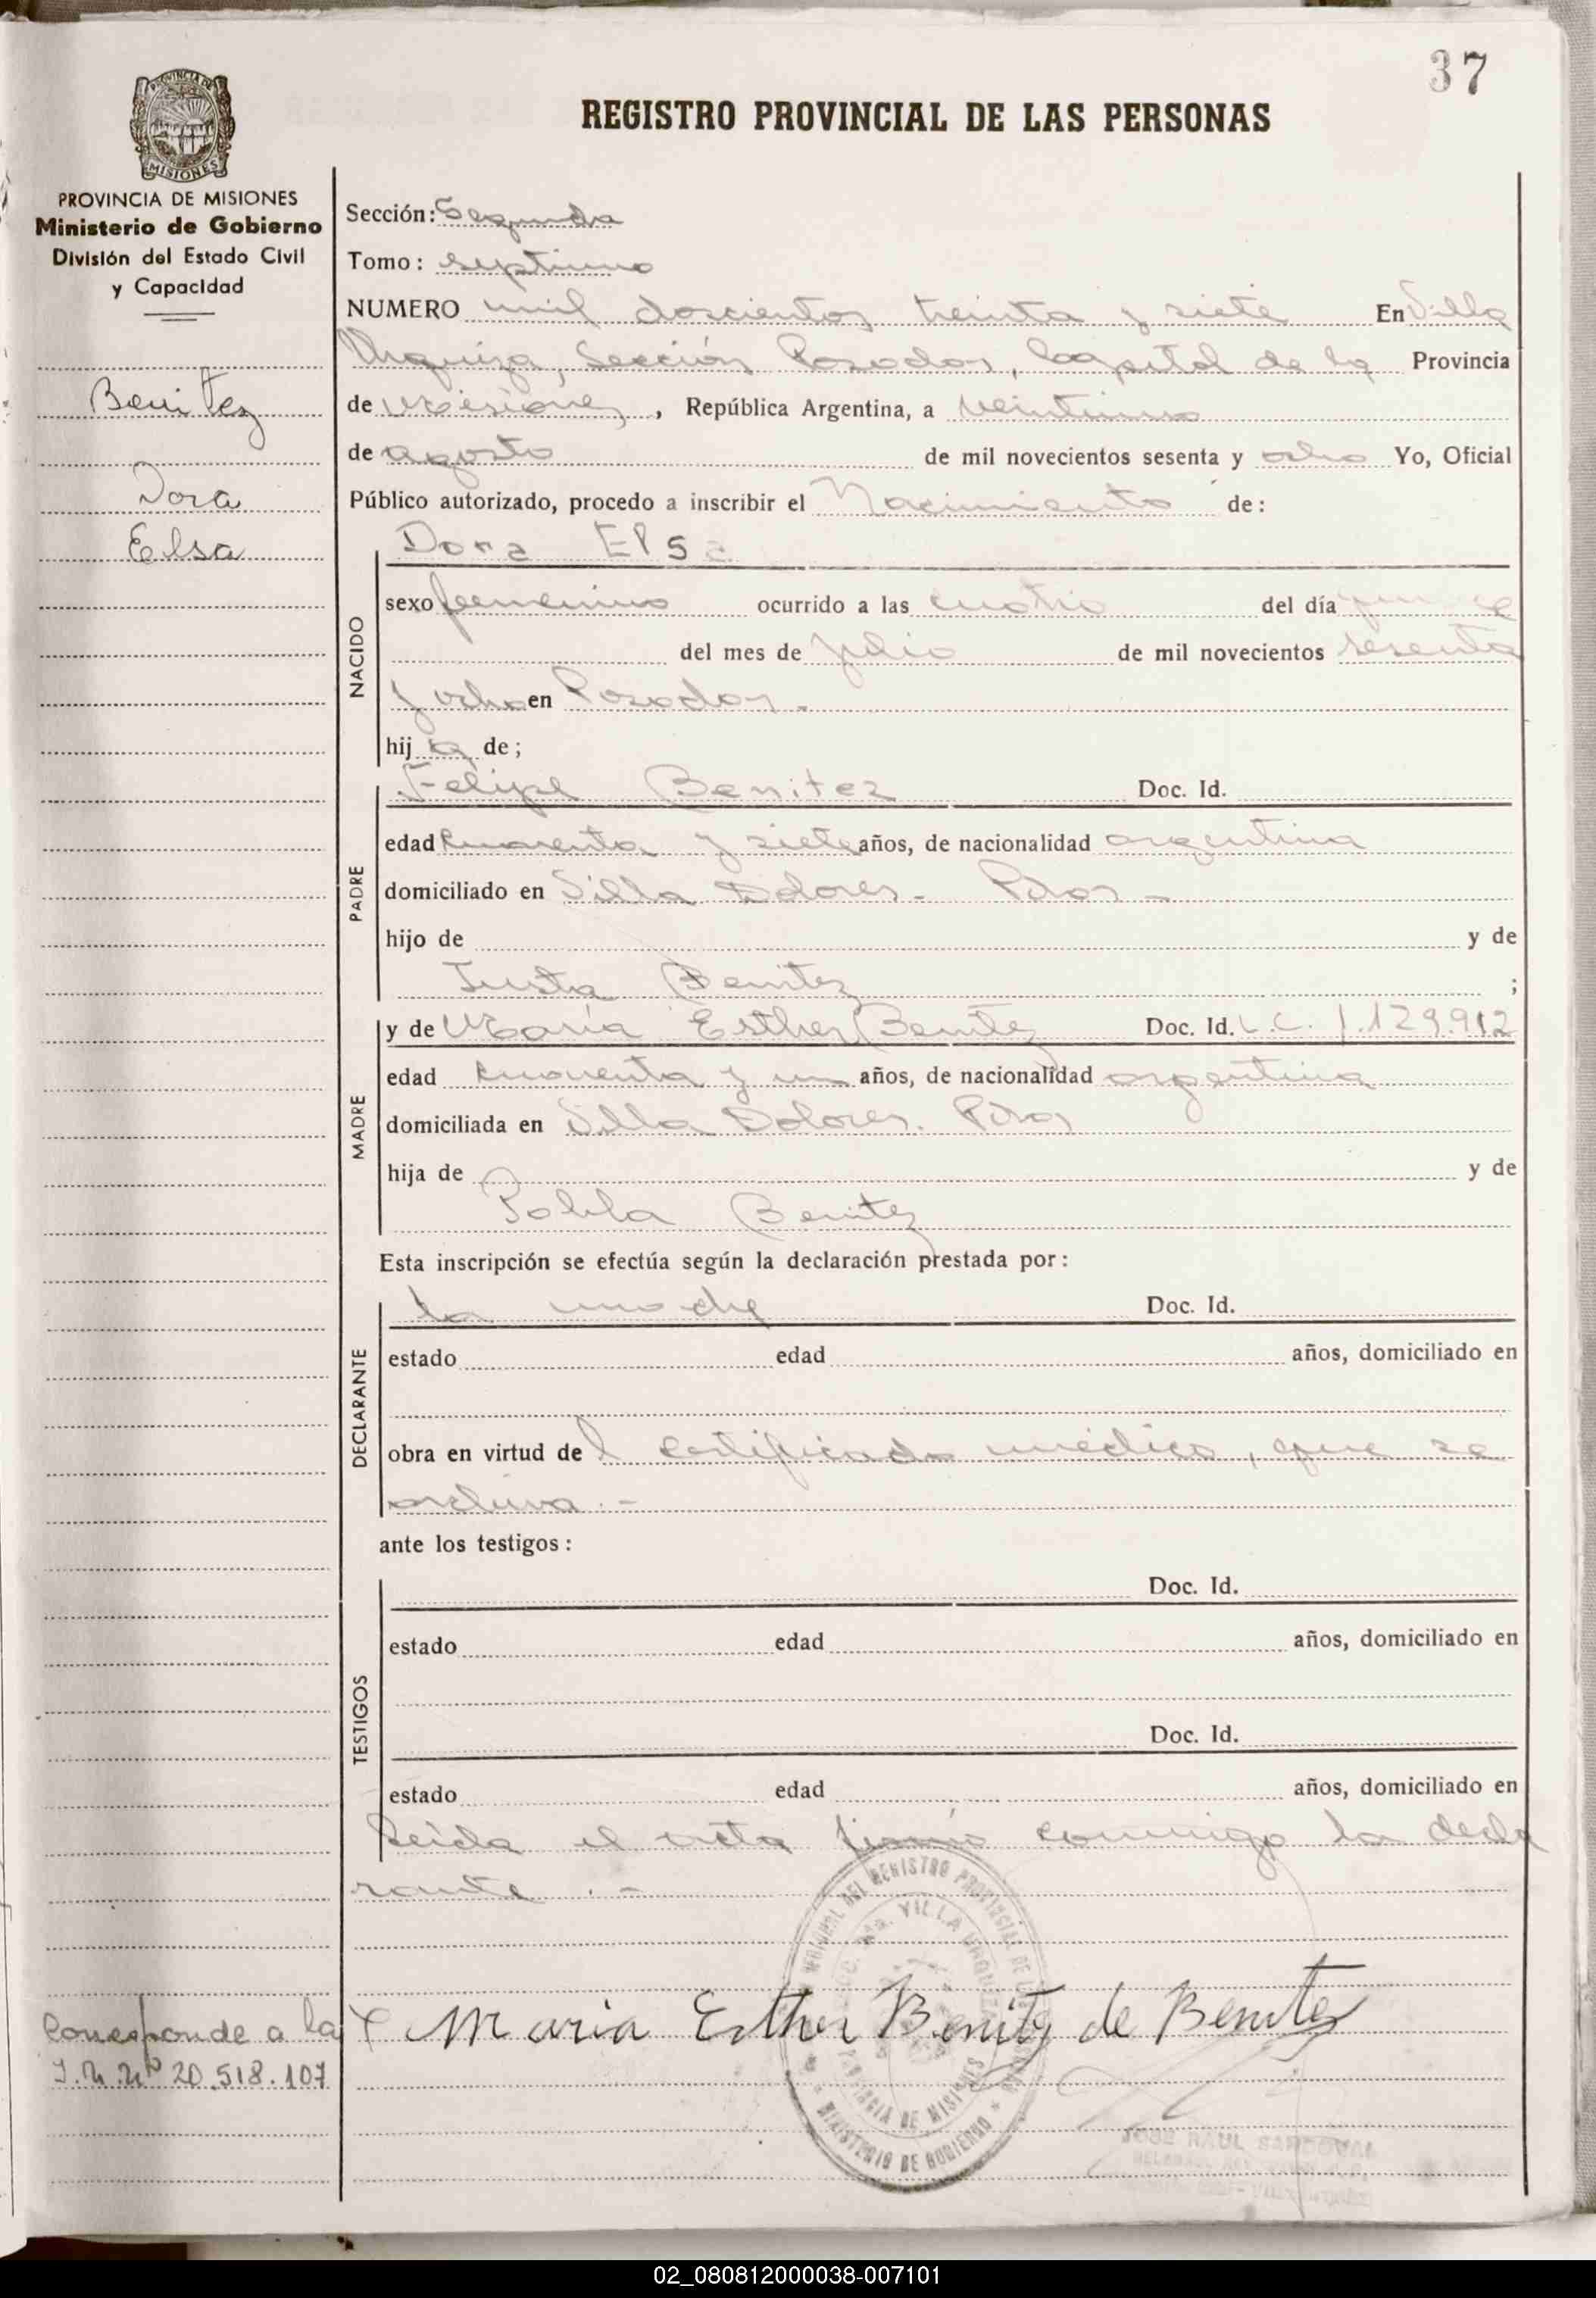 37
REGISTRO PROVINCIAL DE LAS PERSONAS
PROVINCIA DE MISIONES
Ministerio de Gobierno
División del Estado Civil
y Capacidad
Benitez
Dora
Elsa
Sección: Segunda
Tomo: septimo
NUMERO mil doscientos treinta y siete En Villa
Urquiza, Sección Posadas, Capital de la Provincia
de Misiones, República Argentina, a veintiuno
de agosto de mil novecientos sesenta y ocho Yo, Oficial
Público autorizado, procedo a inscribir el Nacimiento de:
NACIDO
Dora Elsa
sexo femenino ocurrido a las cuatro del día quince
del mes de julio de mil novecientos sesenta
y ocho en Posadas.
hija de;
PADRE
Felipe Benitez Doc. Id.
edad cuarenta y siete años, de nacionalidad argentina
domiciliado en Villa Dolores - Pdas -
hijo de y de
Justa Benitez ;
MADRE
y de María Esther Benitez Doc. Id. L.C. 1.129.912
edad cuarenta y un años, de nacionalidad argentina
domiciliada en Villa Dolores. Pdas
hija de y de
Benitez
Esta inscripción se efectúa según la declaración prestada por:
DECLARANTE
la madre Doc. Id.
estado edad años, domiciliado en
obra en virtud del certificado médico, que se
archiva.-
ante los testigos:
TESTIGOS
Doc. Id.
estado edad años, domiciliado en
Doc. Id.
estado edad años, domiciliado en
Leída el acta firmó conmigo la decla
rante.-
REGISTRO PROVINCIAL DE
VILLA URQUIZA
PROVINCIA DE MISIONES
MINISTERIO DE GOBIERNO
X Maria Esther Benitez de Benitez
Corresponde a la
I.M. Nº 20.518.107
JOSE RAUL SANDOVAL
02_080812000038-007101